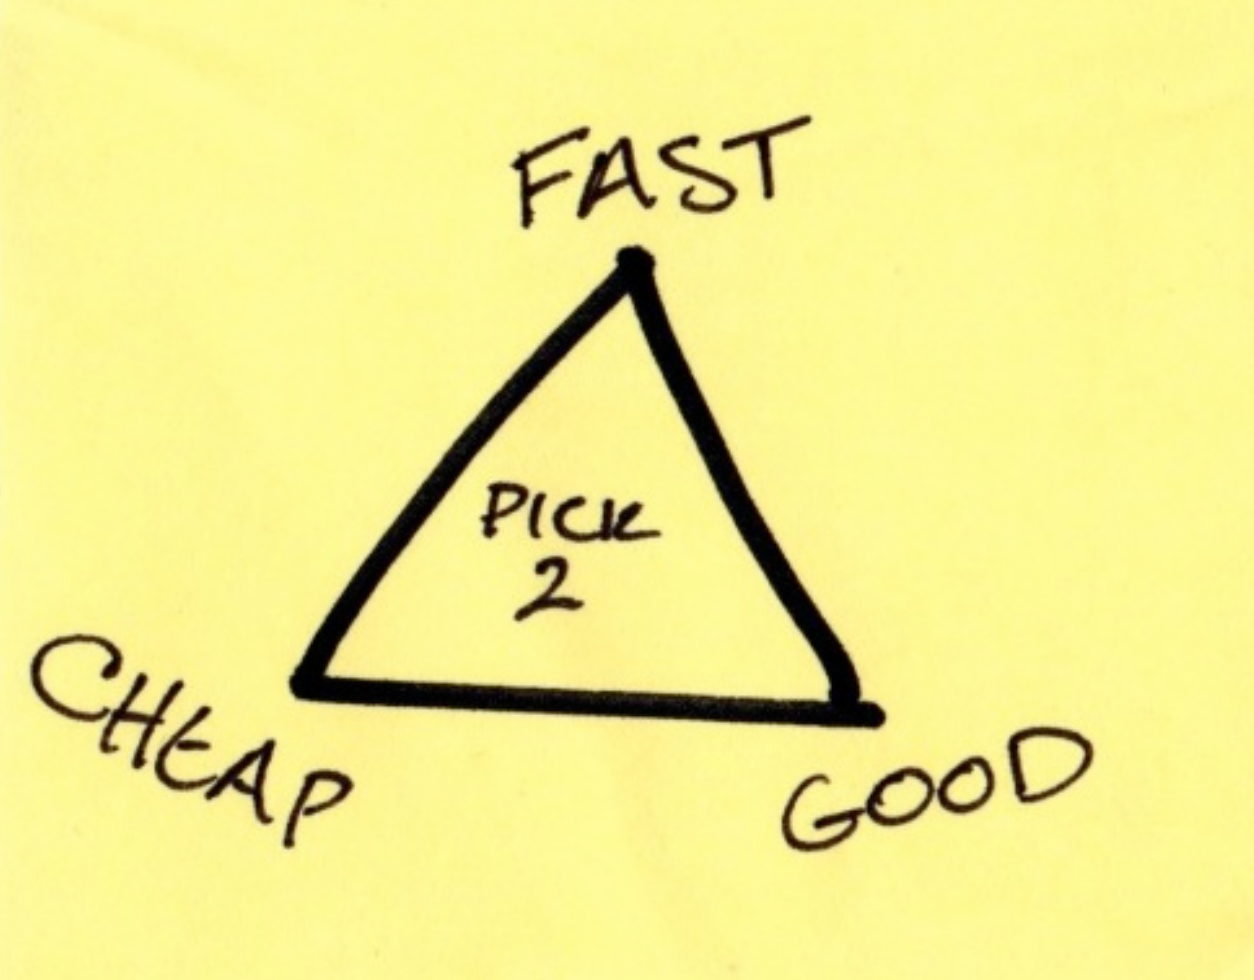 FAST
PICK
2
CHEAP
GOOD